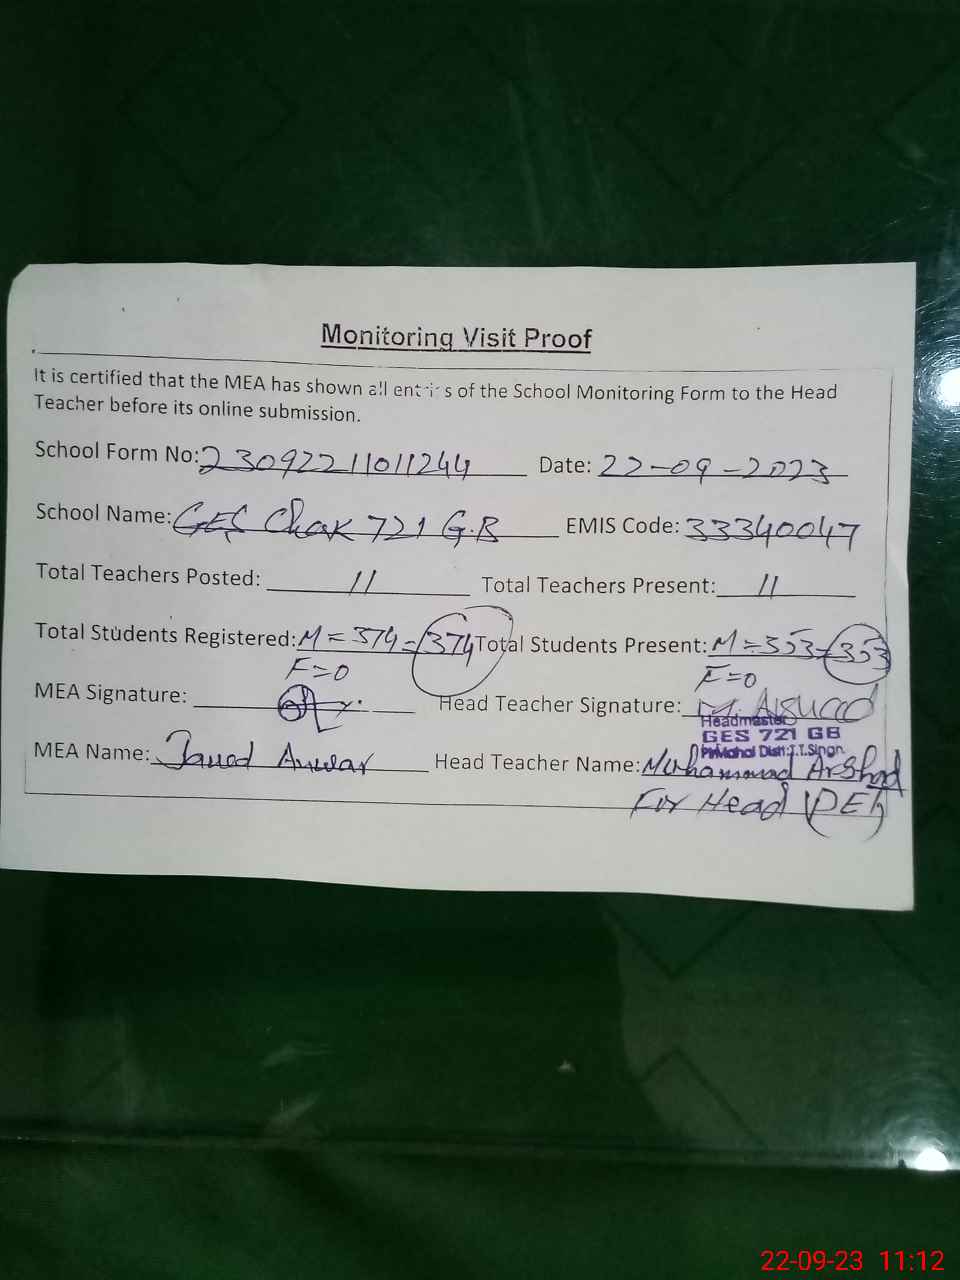 Monitoring Visit Proof
It is certified that the MEA has shown all entries of the School Monitoring Form to the Head
Teacher before its online submission.
School Form No: 23092211011244 Date: 22-09-2023
School Name: GES Chak 721 G.B EMIS Code: 33340047
Total Teachers Posted: 11 Total Teachers Present: 11
Total Students Registered: M=374=374 Total Students Present: M=353=353
F=0 F=0
MEA Signature: Head Teacher Signature: M. Arshad
Headmaster
GES 721 GB
PirMahal Distt:T.T.Singh.
MEA Name: Javed Anwar Head Teacher Name: Muhammad Arshad
For Head (PET)
22-09-23 11:12